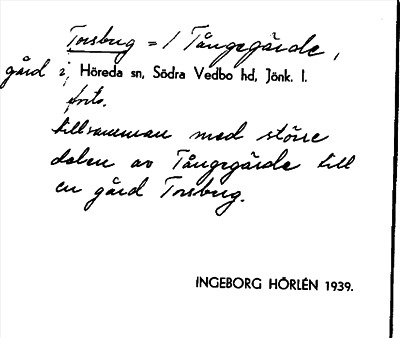 Torsbug = / Tångegärde,
gård i, Höreda sn, Södra Vedbo hd, Jönk. l.
forts.
tillsamman med större
delen av Tångegärde till
en gård Torsbug.
INGEBORG HÖRLÉN 1939.